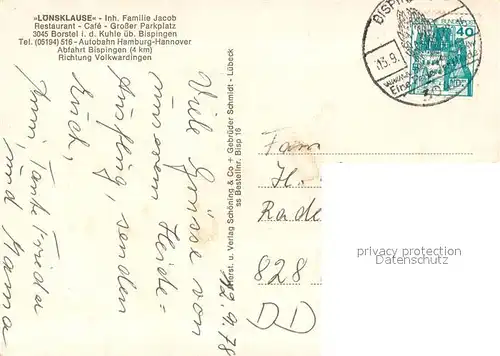 »LÖNSKLAUSE« - Inh. Familie Jacob
Restaurant - Café - Großer Parkplatz
3045 Borstel i. d. Kuhle üb. Bispingen
Tel. (05194) 516 - Autobahn Hamburg-Hannover
Abfahrt Bispingen (4 km)
Richtung Volkwardingen
12.9.78
Viele Grüsse von
unserem Heide=
Ausflug, senden
Euch,
Anni, Tante Frida
und Mama
Herst. u. Verlag Schöning & Co + Gebrüder Schmidt - Lübeck
ss Bestellnr. Bisp 16
BISPIN
13.9.
40
Fam
H.
Rade
828
DD
privacy protection
Datenschutz